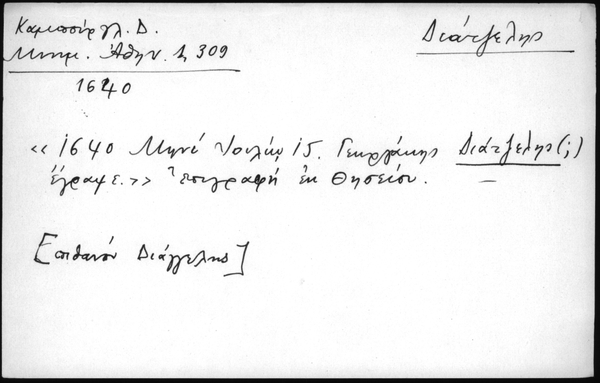 Καμπούργλ. Δ.
Μνημ. Ἀθην. 1, 309
1640
Διάτζελης
« 1640 Μηνί Ἰουλίῳ 15. Γεωργάκης Διάτζελης (;)
ἔγραψε.» Ἐπιγραφή ἐκ Θησείου. —
[πιθανόν Διάγγελης]